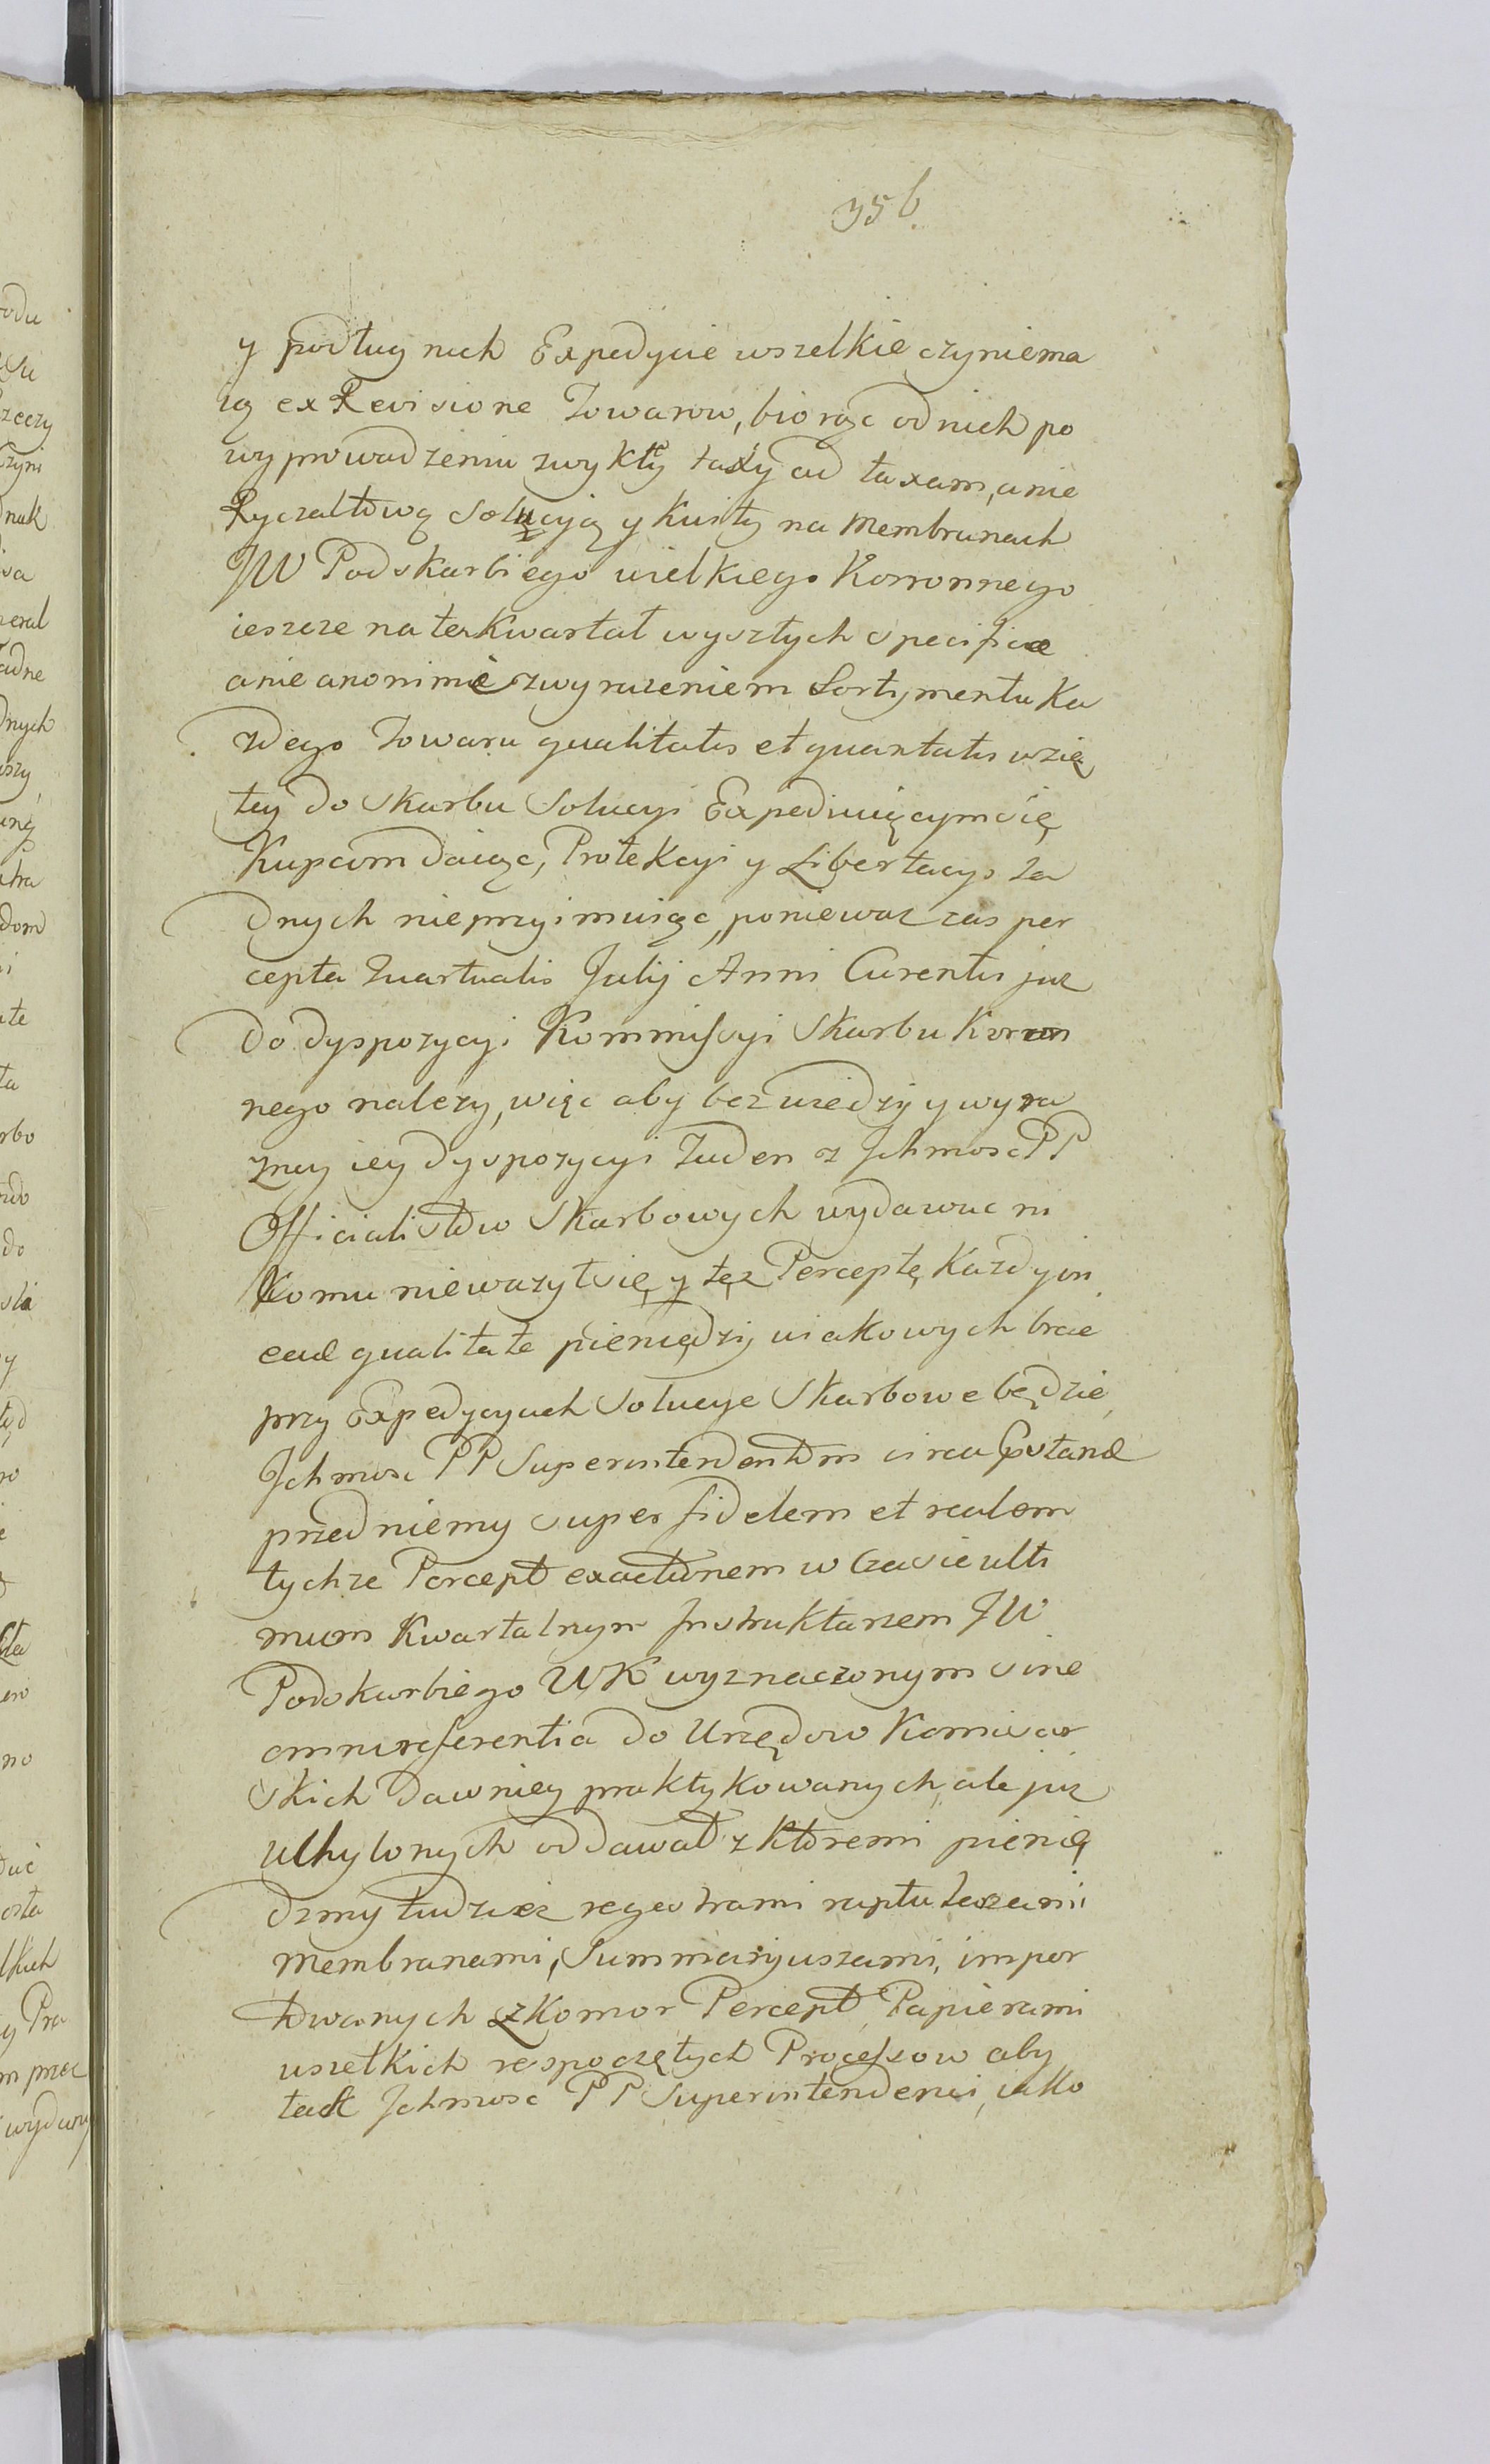 356
y podług nich Expedycie wszelkie czynie ma
ią ex Revisione Towarow, biorąc od nich po
wyprowadzeniu zwykłey taxy ad taxam, a nie
Ryczałtową Solucyią y Kwity na Membranach
JW Podskarbiego wielkiego Koronnego
ieszcze na ten Kwartał wyszłych specifice
a nie anonimie z wyrazeniem Sortymentu Ka
zdego Towaru qualitatis et quantatis wzię
tey do Skarbu Solucyi Expediuiącym się
Kupcom daiąc, Protekcyi y Libertacyi za
dnych nie przyimuiąc, poniewaz zas per
cepta Quartualis Julij Anni Curentis juz
do dyspozycyi Kommissyi Skarbu Koron
nego nalezy, więc aby bez wiedzy y wyra
zney iey dyspozycyi Zaden z Ichmosc PP
Officialistow Skarbowych wydawac ni
komu niewazył się y tęz Perceptę Kazdy in
ead qualitate pieniędzy w iakowych brac
przy Expedycyach Solucye Skarbowe będzie
Ichmosc PP Superintendentom circa Constand
przed niemy super fidelem et realem
tychze Percept exactionem w Czasie ulti
mum Kwartalnym Instruktarzem JW
Podskarbiego WK wyznaczonym sine
omni referentia do Urzędow Komisar
skich dawniey praktykowanych, ale juz
uchylonych oddawał z ktoremi pienię
dzmy tudziez regestrami raptularzami
Membranami, Summaryuszami, impor
towanych z Komor Percept, Papierami
wszelkich rospoczętych Processow aby
ciz Ichmosc PP Superintendenci, iako